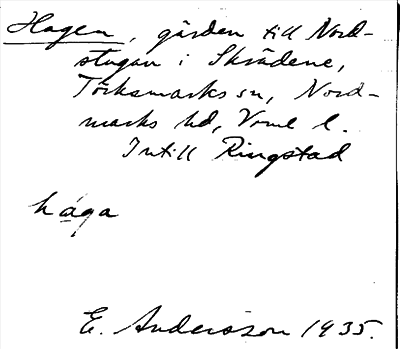 Hagen, gärden till Nord-
stugan i Skrädene,
Törksmarks sn, Nord-
marks hd, Vrml l.
Intill Ringstad
håga
E. Andersson 1935.